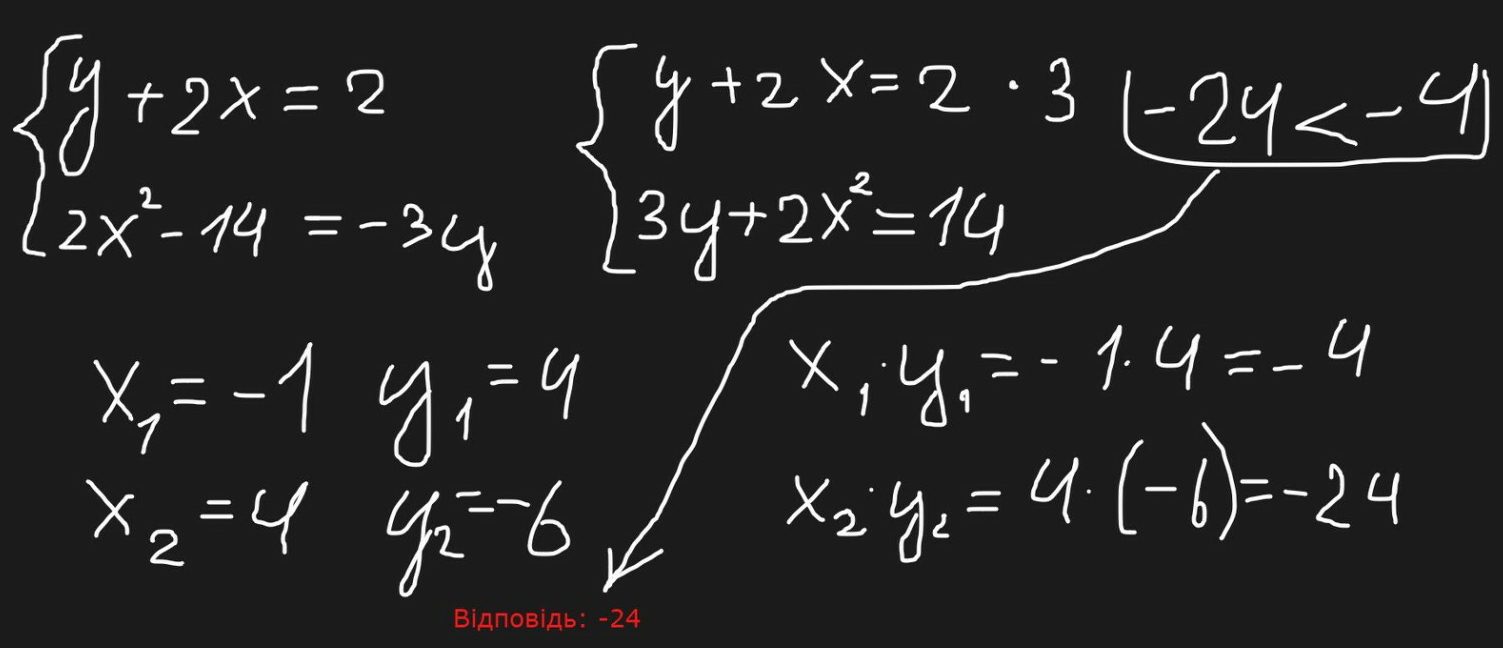 y + 2x = 2
2x² - 14 = -3y
y + 2x = 2 · 3
3y + 2x² = 14
-24 < -4
x₁ = -1 y₁ = 4
x₂ = 4 y₂ = -6
x₁ · y₁ = -1 · 4 = -4
x₂ · y₂ = 4 · (-6) = -24
Відповідь: -24